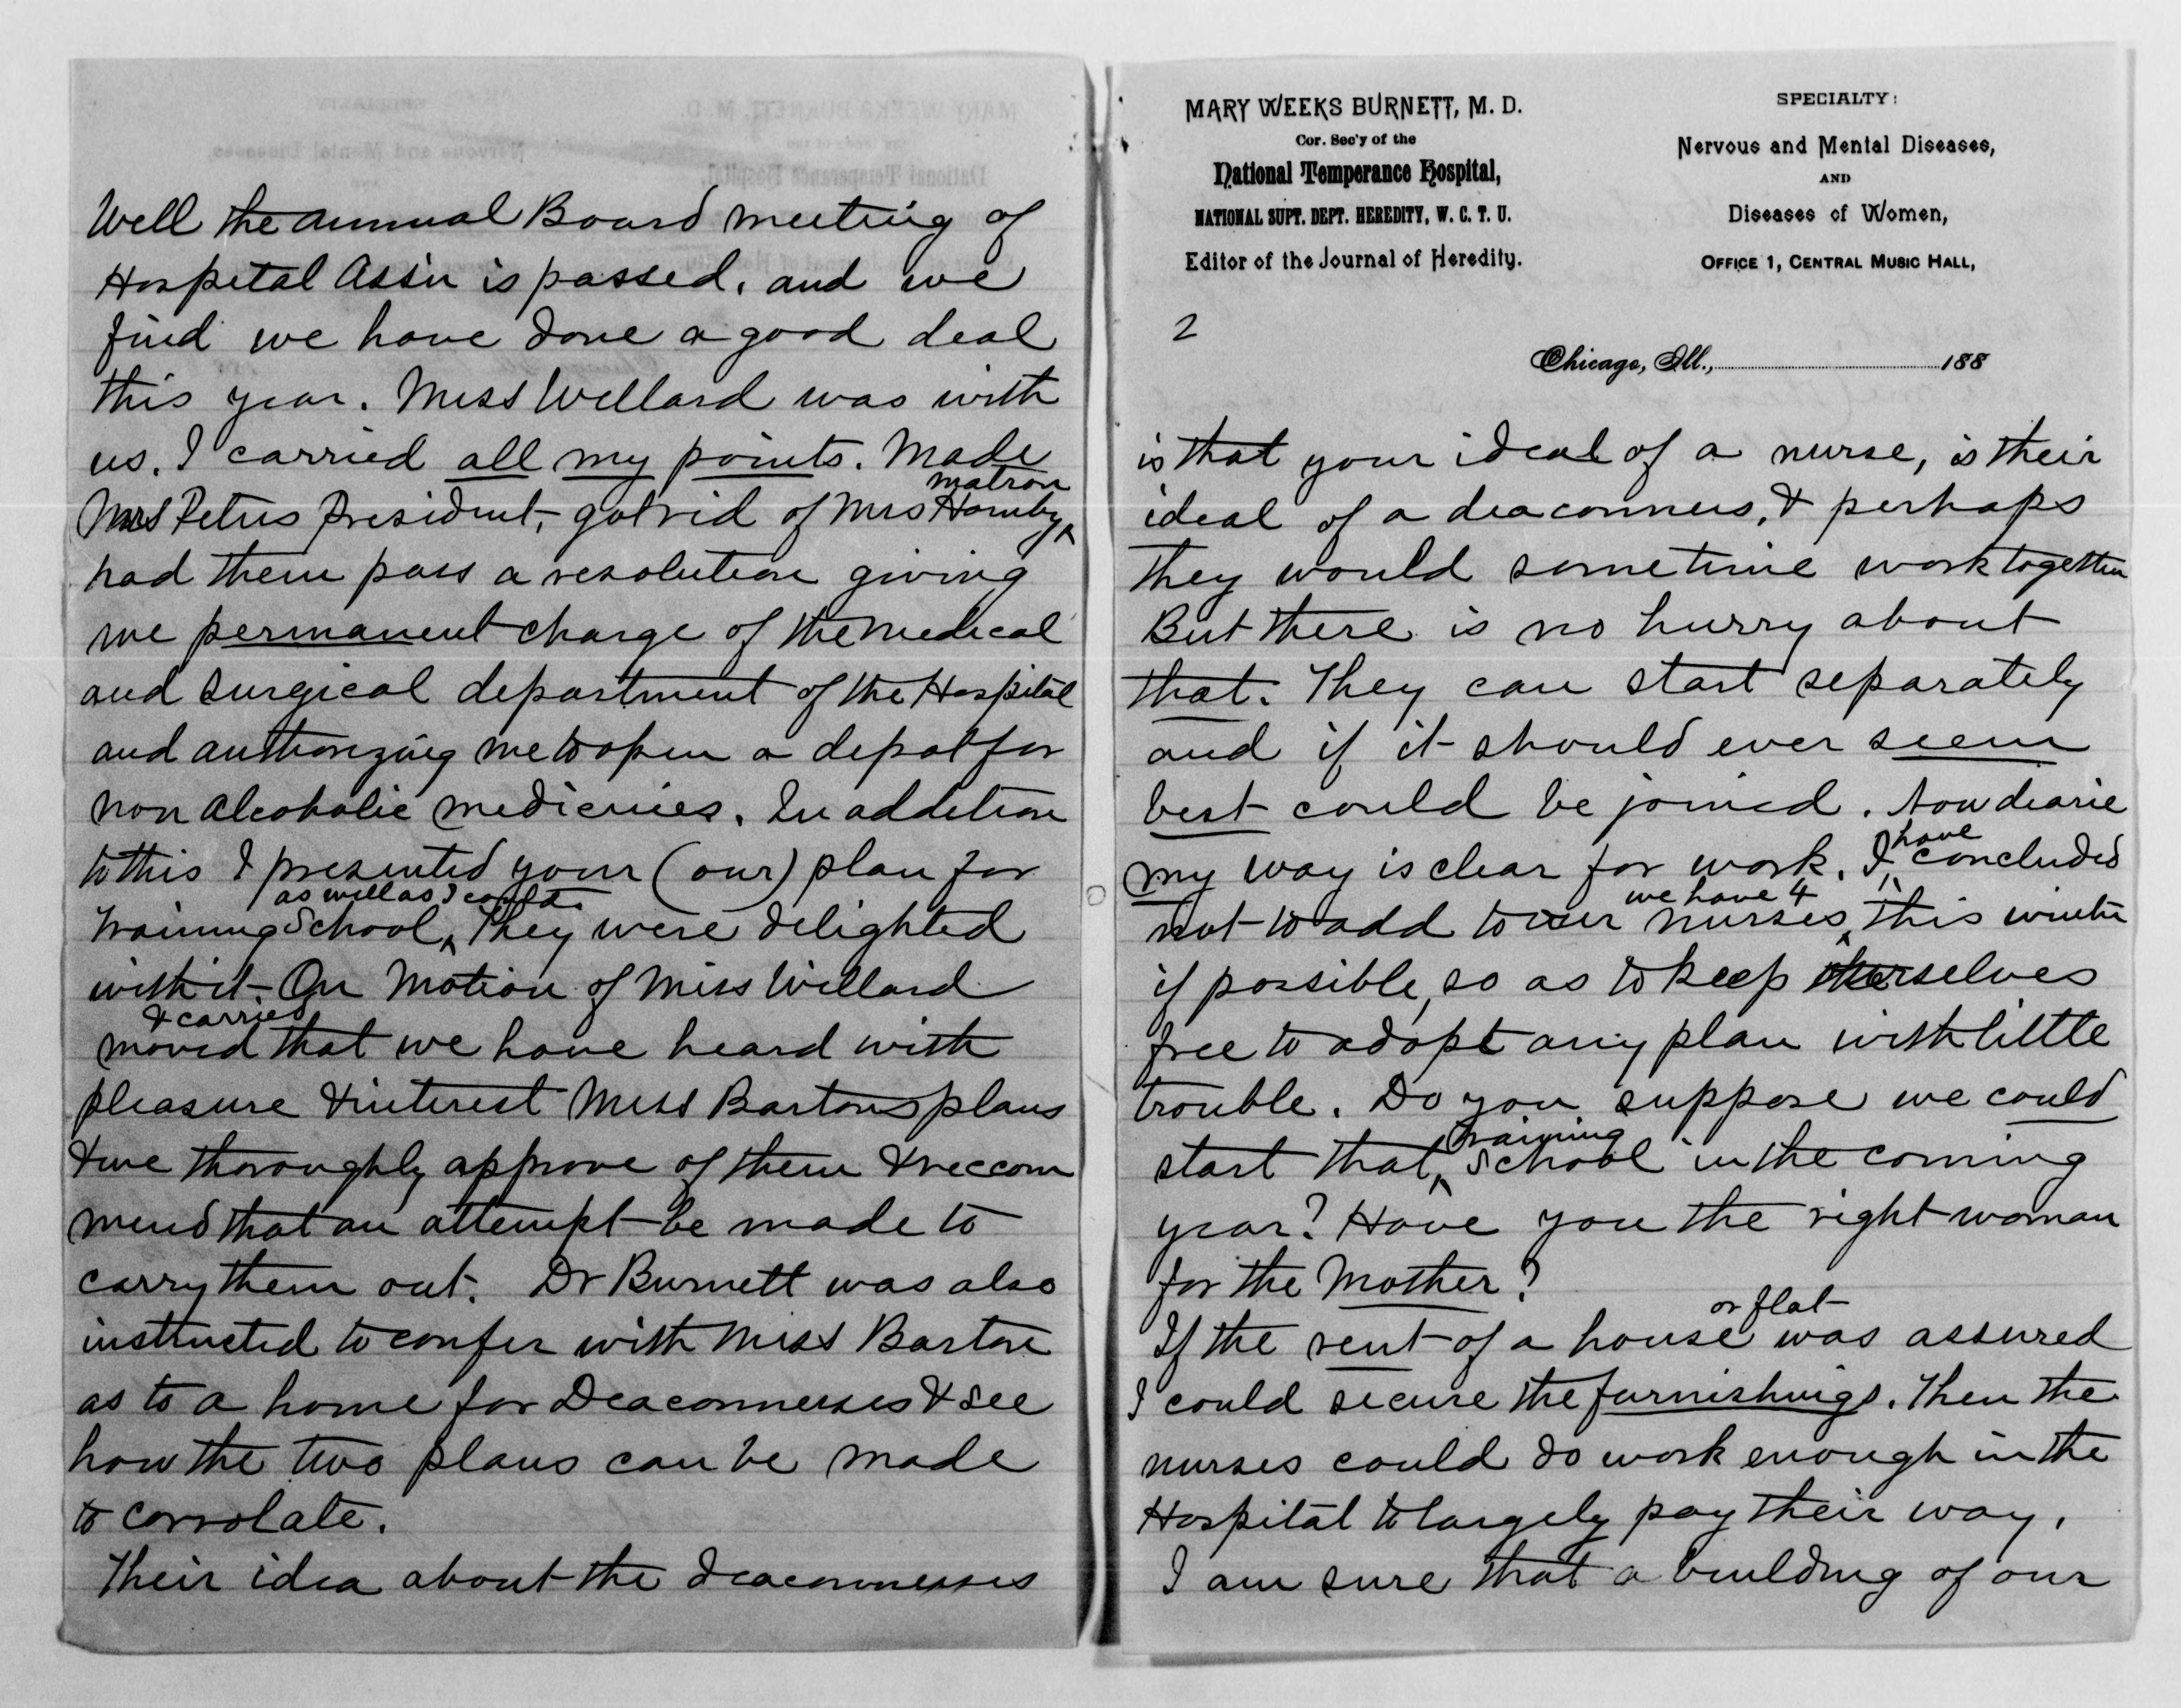 Well the annual Board meeting of
Hospital Ass'n is passed, and we
find we have done a good deal
this year. Miss Willard was with
us. I carried all my points. Made
matron
Mrs Petus President, got rid of Mrs Hornby
had them pass a resolution giving
me permanent charge of the medical
and surgical department of the Hospital
and authorizing me to open a depot for
non alcoholic medicines. In addition
to this I presented your (our) plan for
as well as I could.
Training School, They were delighted
with it. On Motion of Miss Willard
& carried
moved that we have heard with
pleasure & interest Miss Bartons plans
& we thoroughly approve of them & reccom
mend that an attempt be made to
carry them out. Dr Burnett was also
instructed to confer with Miss Barton
as to a home for Deaconnesses & see
how the two plans can be made
to correlate.
Their idea about the deaconnesses
MARY WEEKS BURNETT, M. D.
Cor. Sec'y of the
National Temperance Hospital,
NATIONAL SUPT. DEPT. HEREDITY, W. C. T. U.
Editor of the Journal of Heredity.
SPECIALTY:
Nervous and Mental Diseases,
AND
Diseases of Women,
OFFICE 1, CENTRAL MUSIC HALL,
2
Chicago, Ill., 188
is that your ideal of a nurse, is their
ideal of a deaconness, & perhaps
they would sometime work together
But there is no hurry about
that. They can start separately
and if it should ever seem
best could be joined. Now dearie
my way is clear for work. I have concluded
we have 4
not to add to our nurses, this winter
if possible, so as to keep ourselves
free to adopt any plan with little
trouble. Do you suppose we could
training
start that school in the coming
year? Have you the right woman
for the Mother?
or flat
If the rent of a house was assured
I could secure the furnishings. Then the
nurses could do work enough in the
Hospital to largely pay their way.
I am sure that a building of our